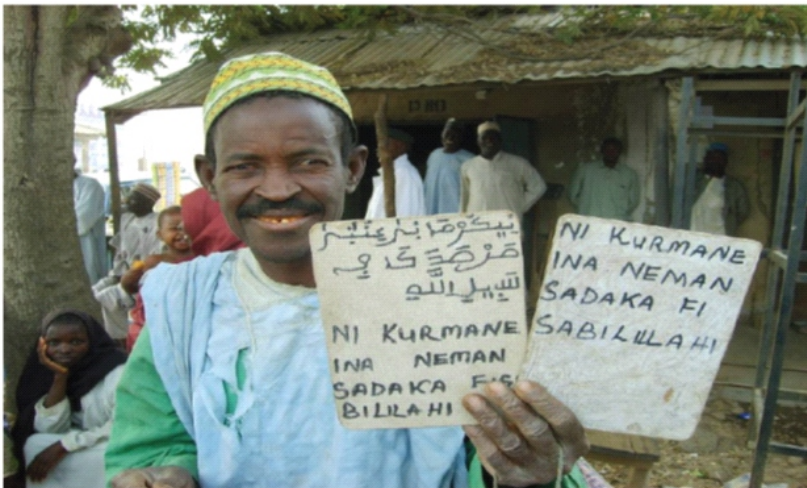 في
سَبِيلِ اللَّهِ
NI KURMANE
INA NEMAN
SADAKA FIS
BILILAHI
NI KURMANE
INA NEMAN
SADAKA FI
SABILILLAHI